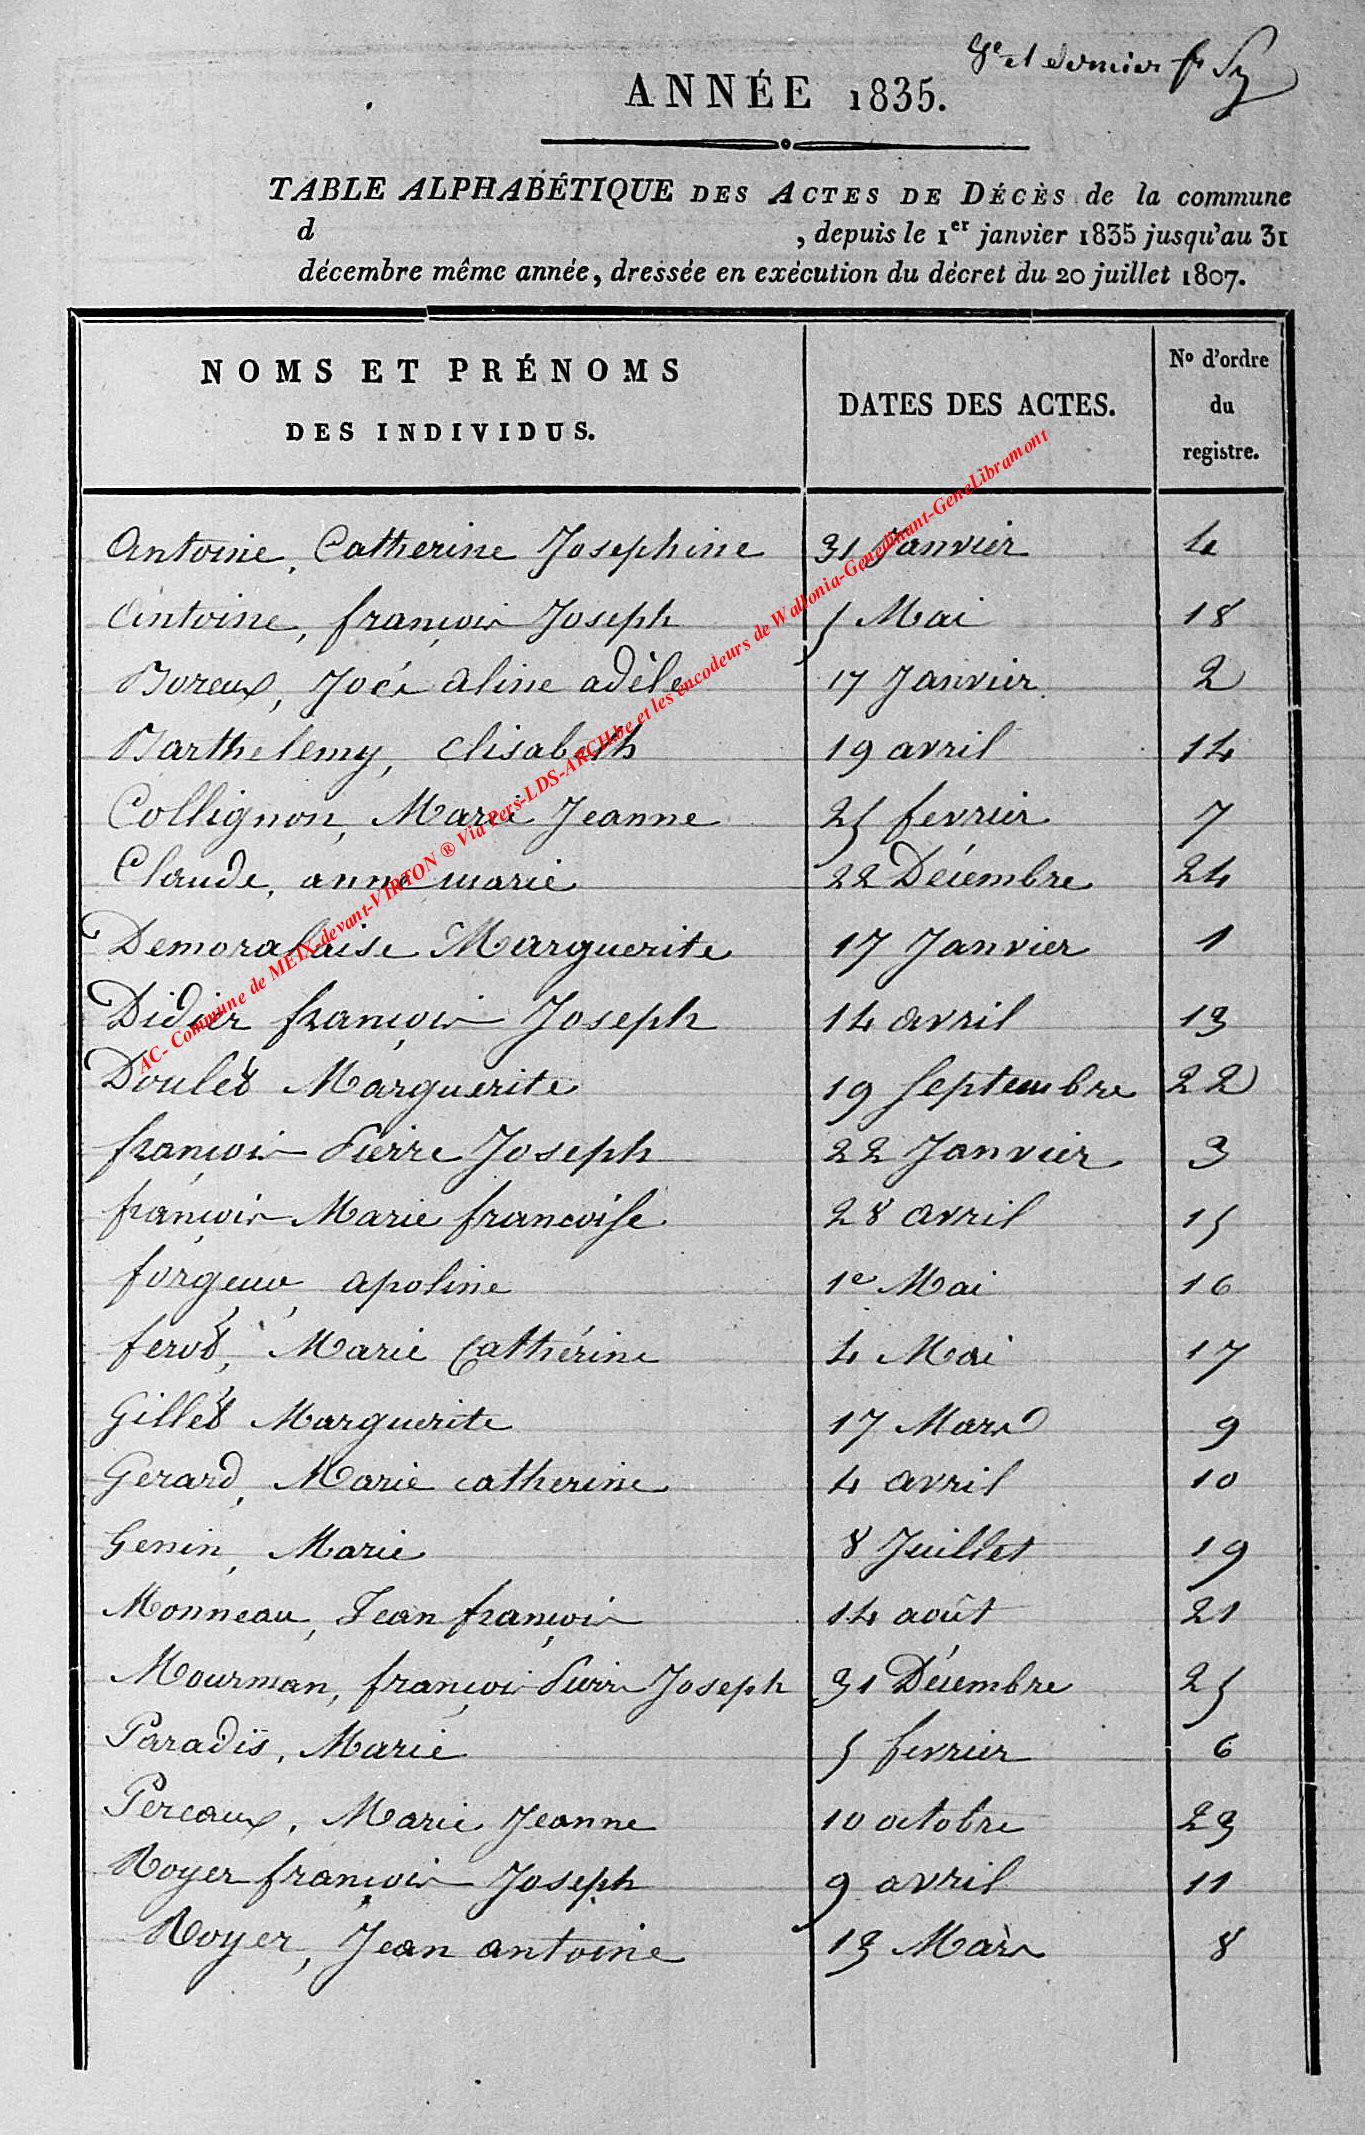 8e et dernier f
ANNÉE 1835.
TABLE ALPHABÉTIQUE DES ACTES DE DÉCÈS de la commune
d , depuis le 1er janvier 1835 jusqu'au 31
décembre même année, dressée en exécution du décret du 20 juillet 1807.
NOMS ET PRÉNOMS DES INDIVIDUS. DATES DES ACTES. No d'ordre du registre.
Antoine, Catherine Josephine 31 Janvier 4
Antoine, françois Joseph 5 Mai 18
Boreux, aline adèle 17 Janvier 2
Barthelemy, elisabeth 19 avril 14
Collignon, Marie Jeanne 25 fevrier 7
Claude, anne marie 22 Décembre 24
Demoralaise Marguerite 17 Janvier 1
Didier françois Joseph 14 avril 13
Doulet Marguerite 19 septembre 22
françois Pierre Joseph 22 Janvier 3
françois Marie francoise 28 avril 15
forgeur, apoline 1e Mai 16
Marie Cathérine 4 Mai 17
Gillet Marguerite 17 Mars 9
Gerard, Marie catherine 4 avril 10
Genin, Marie 8 Juillet 19
Monneau, Jean françois 14 août 21
Mourman, françois Pierre Joseph 31 Décembre 25
Paradis, Marie 5 fevrier 6
Pereaux, Marie Jeanne 10 octobre 23
Royer françois Joseph 9 avril 11
Royer, Jean antoine 13 Mars 8
AC- Commune de MEIX-devant-VIRTON ® Via Pers-LDS-ARCH.be et les encodeurs de Wallonia-Genedinant-GeneLibramont